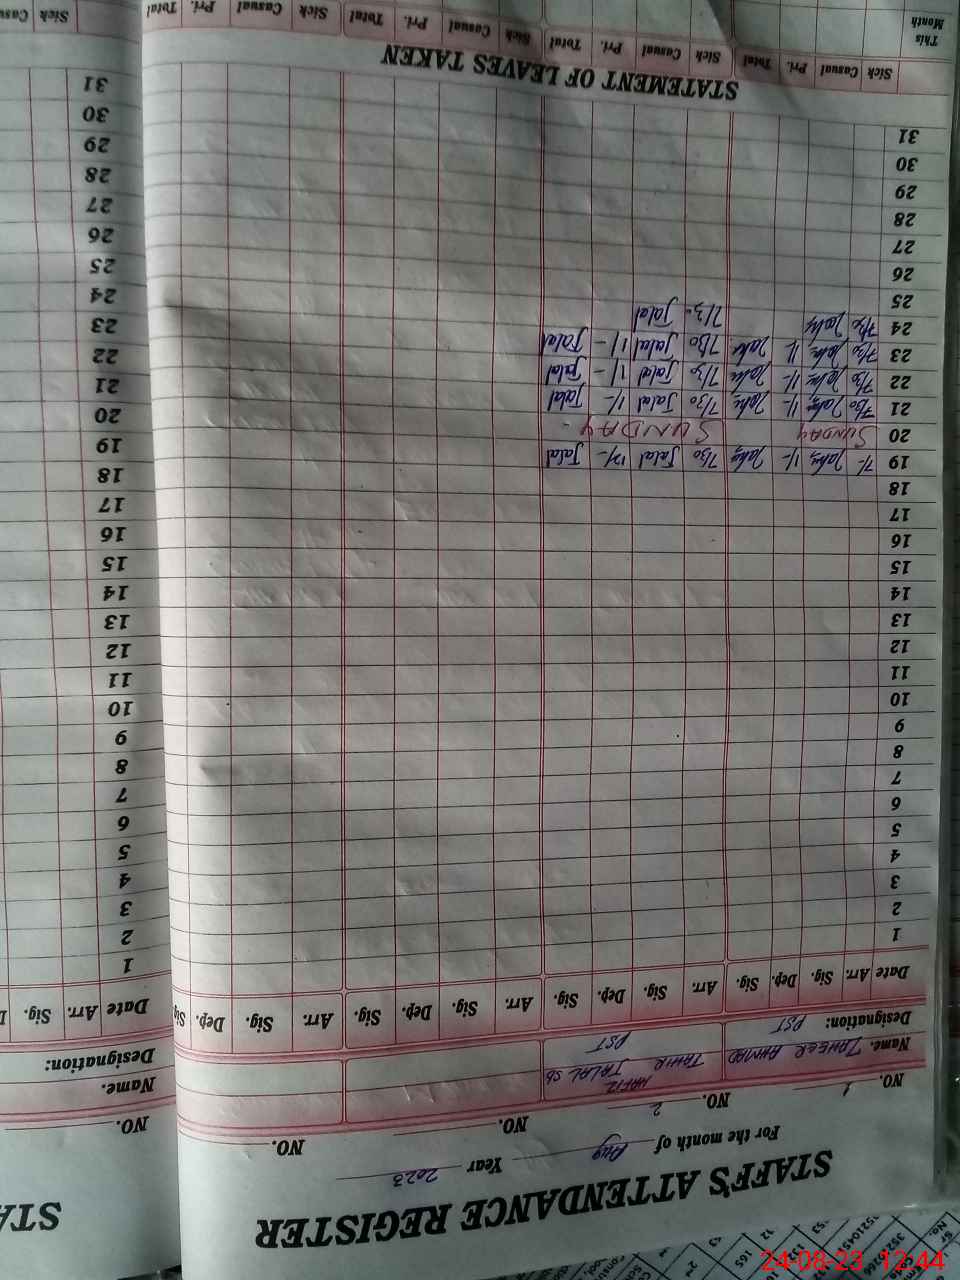 STAFF'S ATTENDANCE REGISTER
For the month of Aug Year 2023
NO. 1 NO. 2 NO. NO.
Name. ZAHEER AHMAD HAFIZ TAHIR JALAL SB
Designation: PST PST
Date Arr. Sig. Dep. Sig. Arr. Sig. Dep. Sig. Arr. Sig. Dep. Sig. Arr. Sig. Dep. Sig
1
2
3
4
5
6
7
8
9
10
11
12
13
14
15
16
17
18
19 7/- 1/- 7/30 Jalal 12/- Jalal
20 SUNDAY SUNDAY
21 7/30 1/- 7/30 Jalal 1/- Jalal
22 7/30 1/- 7/30 Jalal 1/- Jalal
23 7/30 1/- 7/30 Jalal 1/- Jalal
24 7/30 7/30 Jalal
25
26
27
28
29
30
31
STATEMENT OF LEAVES TAKEN
Sick Casual Pri. Total Sick Casual Pri. Total Sick Casual Pri. Total Sick Casual Pri. Total
This Month
STA
NO.
Name.
Designation:
Date Arr. Sig.
1
2
3
4
5
6
7
8
9
10
11
12
13
14
15
16
17
18
19
20
21
22
23
24
25
26
27
28
29
30
31
Sick Casu
24-08-23 12:44